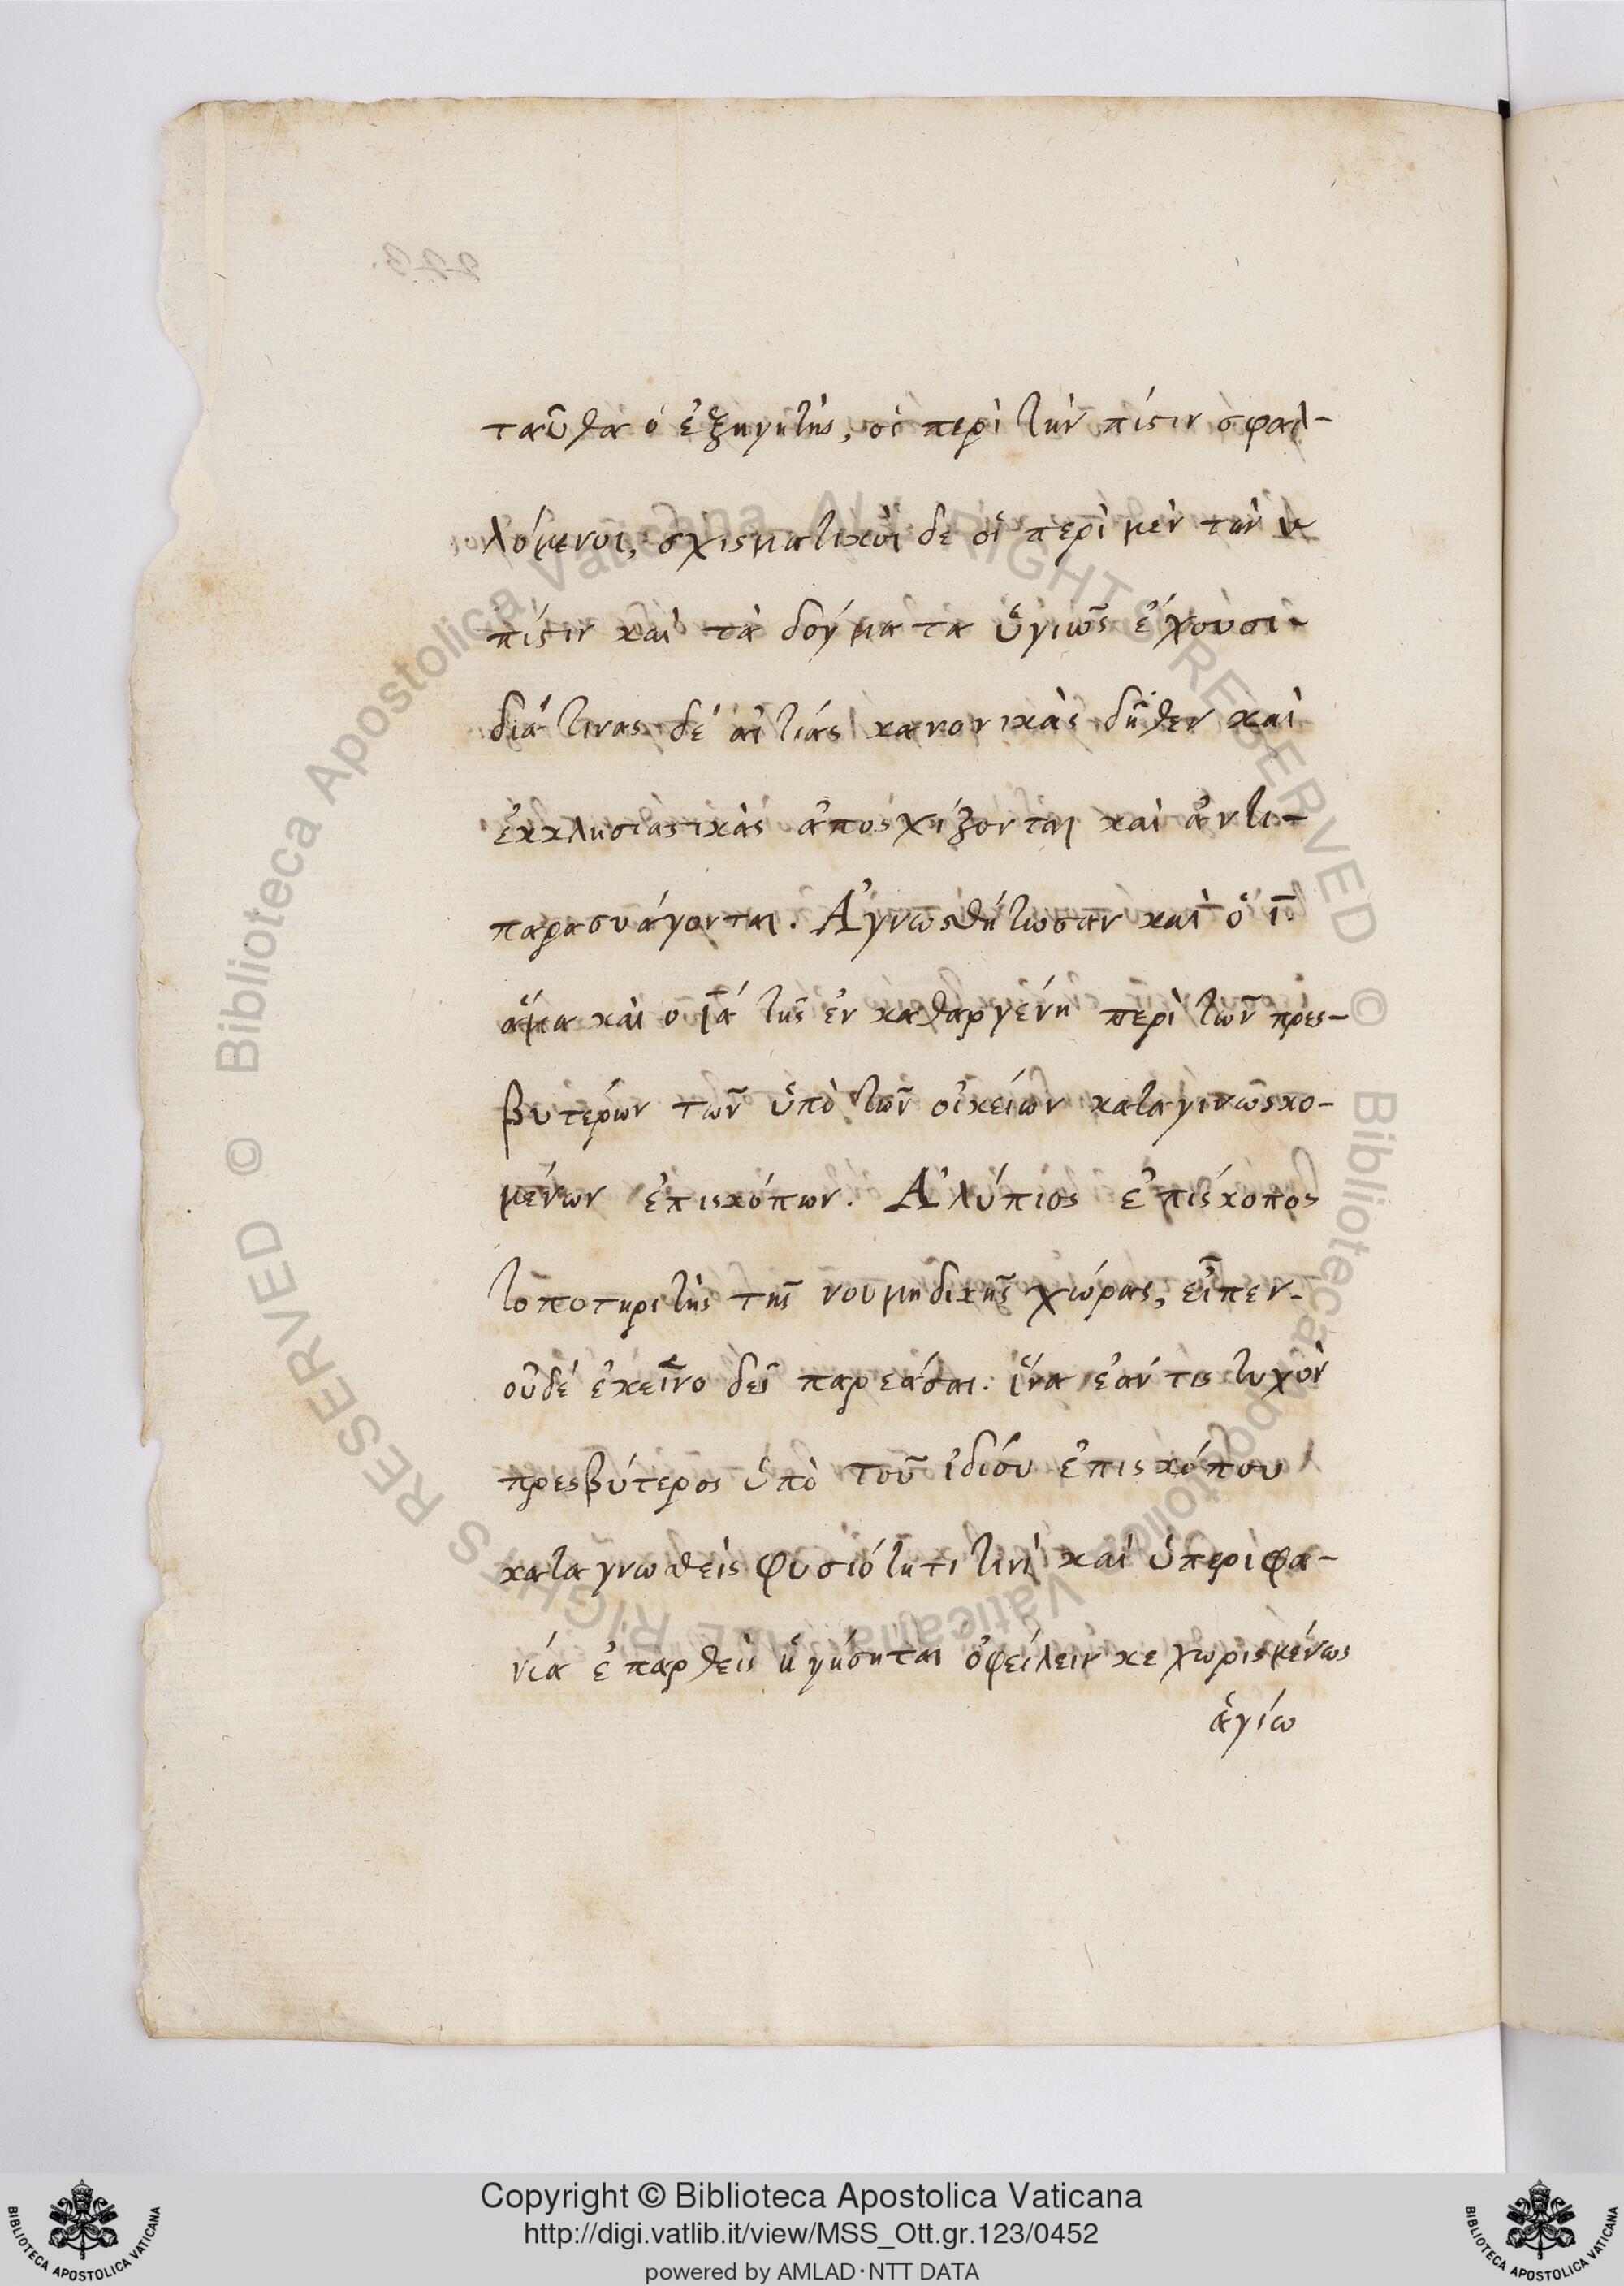 ταῦθα ὁ ἐξηγητὴς, οἱ περὶ τὴν πίστιν σφαλ-
λόμενοι, σχισματικοὶ δε οἱ περὶ μὲν τὴν
πίστιν καὶ τὰ δόγματα ὑγιῶς ἔχουσι-
διά τινας δέ αἰτιάς κανονικὰς δῆθεν καὶ
ἐκκλησιαστικὰς ἀποσχίζονται καὶ ἀντι-
παρασυάγονται. Ἀγνωσθήτωσαν καὶ ὁ ι̅.
ἅμα καὶ ο ι̅ά τῆς ἐν καθαργένη περὶ τῶν πρεσ-
βυτερών τῶν ὑπὸ τῶν οἰκείων καταγινῶσκο-
μένων ἐπισκόπων. Ἀλύπιος ἐπισκοπος
τοποτηριτὴς τῆς νουμηδικῆς χώρας, εἶπεν-
οὐδέ ἐκεῖνο δεῖ παρεάσαι. ἵνα ἐάν τις τυχὸν
πρεσβύτερος ὑπὸ τοῦ ἰδιόυ ἐπισκόπου
καταγνωθεὶς φυσιότητι τινὶ καὶ ὑπεριφα-
νία ἐπαρθεὶς ἡγήσηται ὀφείλειν κεχωρισμένως
ἁγίω
223.
Copyright © Biblioteca Apostolica Vaticana
http://digi.vatlib.it/view/MSS_Ott.gr.123/0452
powered by AMLAD·NTT DATA
BIBLIOTECA APOSTOLICA VATICANA
BIBLIOTECA APOSTOLICA VATICANA
© Biblioteca Apostolica Vaticana ALL RIGHTS RESERVED © Biblioteca Apostolica Vaticana ALL RIGHTS RESERVED